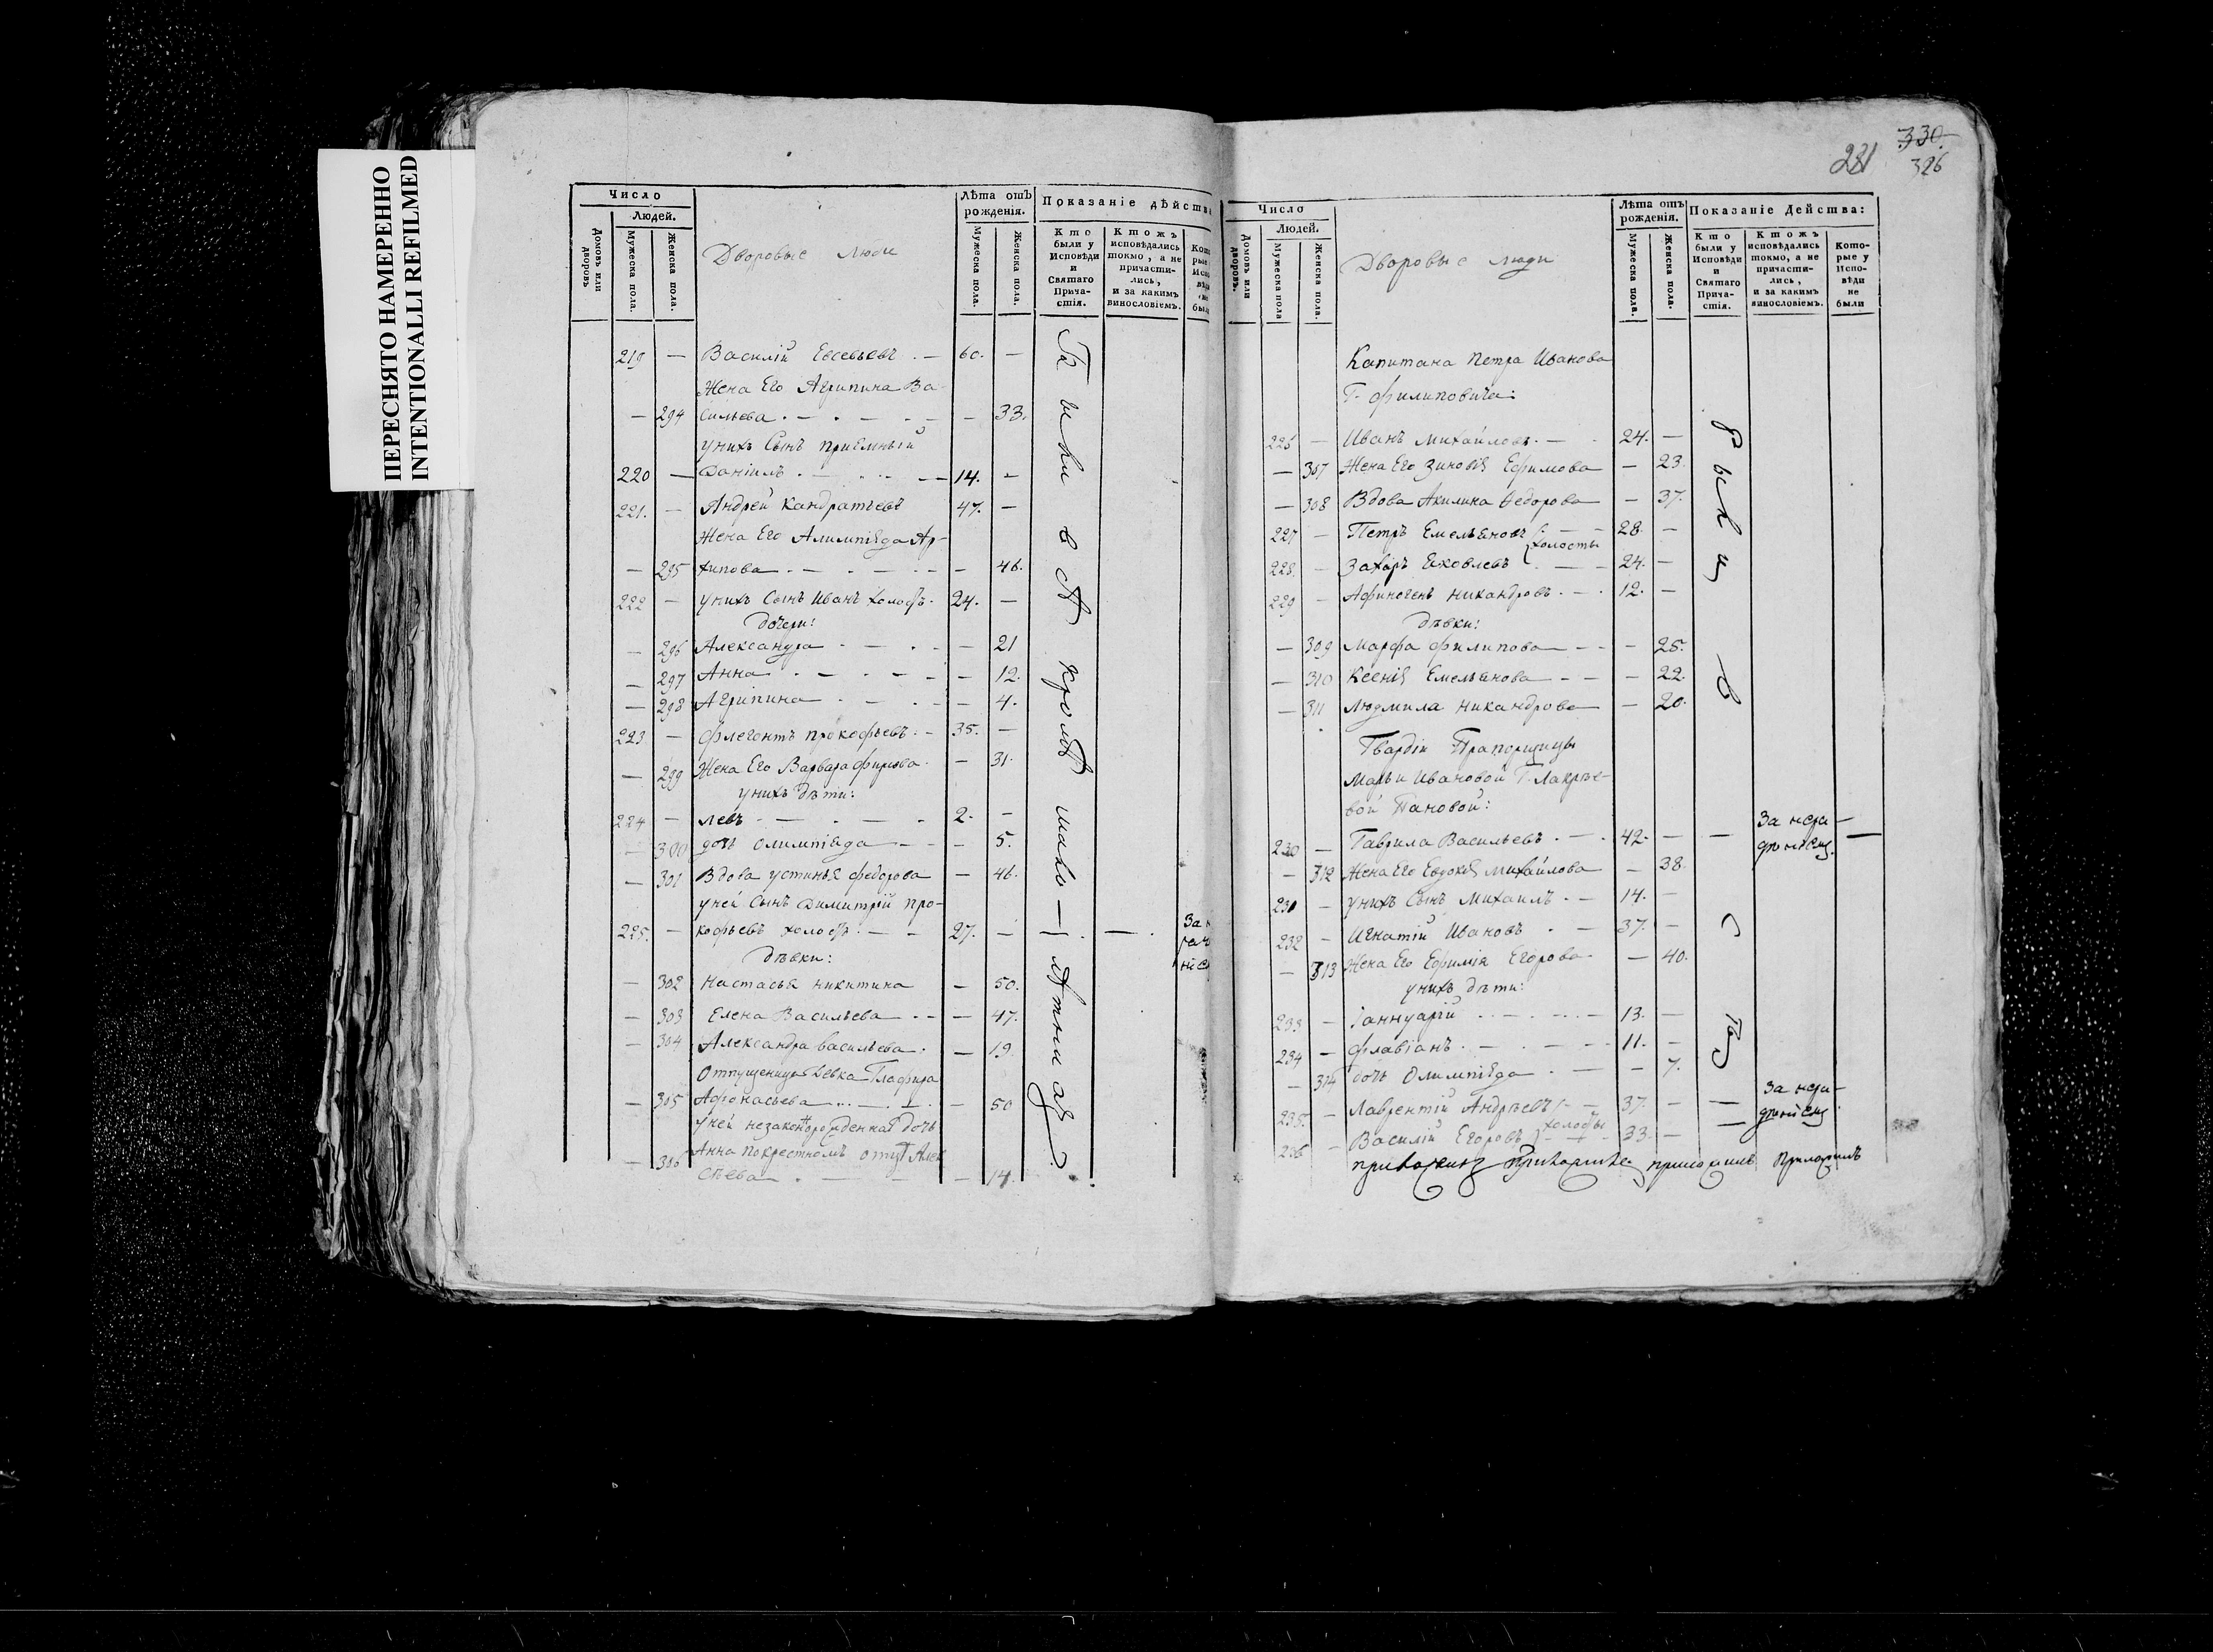 ПЕРЕСНЯТО НАМЕРЕННО
INTENTIONALLI REFILMED
Число
Людей.
Домовъ или дворовъ
Мужеска пола.
Женска пола.
Дворовые люди
Лѣта отъ рожденія.
Мужеска пола.
Женска пола.
Показаніе дѣйств
Кто были у Исповѣди и Святаго Прича-стія.
Ктожъ исповѣдались токмо, а не причасти-лись, и за какимъ винословіемъ.
219 — Василій Евсевьевъ . — 60. —
Жена Его Агрипина Ва-
— 294 сильева . — . — . — — 33.
унихъ Сынъ приемный
220 — Даніилъ . — . — — 14. —
221. — Андрей Кандратьевъ 47. —
Жена Его Алимпіяда Ар-
— 295 хипова . — . — . — — 46.
222 — унихъ Сынъ Иванъ холостъ . 24. —
дочери:
— 296 Александра . — . — — 21
— 297 Анна . — . — — — 12.
— 298 Агрипина . — . — — 4.
223 — Флегонтъ прокофьевъ . — 35. —
— 299 Жена Его Варвара . — 31.
унихъ дѣти:
224 — Левъ . — . — . 2. —
— 300 дочь Олимпіяда — — — 5.
— 301 Вдова устинья федорова — 46.
уней Сынъ Димитрій про-
225. — кофьевъ холостъ . — — 27. — — . — .
дѣвки:
— 302 Настасья никитина — 50.
— 303 Елена Васильева . — — 47.
— 304 Александра васильева . — 19.
Отпущеница девка Глафира
— 305 Афонасьева . — . — — 50
уней незаконорожденная дочь
— 306 Анна покрестномъ отцѣ Алек
сѣева . — — — 14.
кромѣ
330.
281 326
Число
Людей.
Домовъ или дворовъ.
Мужеска пола
Женска пола.
Дворовые люди
Лѣта отъ рожденія.
Мужеска пола.
Женска пола.
Показаніе Действа:
Кто были у Исповѣди и Святаго Прича-стія.
Ктожъ исповѣдались токмо, а не причасти-лись, и за какимъ винословіемъ.
Кото-рые у Испо-вѣди не были
Капитана Петра Иванова
Г. Филиповича:
226 — Иванъ Михайловъ . — 24. —
— 307 Жена Его Зиновія Ефимова — 23.
— 308 Вдова Акилина Федорова — 37.
227 — Петръ Емельяновъ — — 28. —
холосты
228. — Захаръ Яковлевъ . — — 24. —
229 — Афиногенъ никандровъ . — . 12. —
дѣвки:
— 309 Марфа филипова — — — 25.
— 310 Ксенія Емельянова — — — 22.
— 311 Людмила никандрова — 20.
Гвардіи Прапорщицы
Марьи Ивановой Г.
вой Пановой:
230 — Гаврила Васильевъ . — . 42. — — За нера-
дѣніемъ. —
— 312 Жена Его Евдокія Михайлова — 38.
231 — унихъ Сынъ Михаилъ . — 14. —
232 — Игнатій Ивановъ . — 37. —
— 313 Жена Его Ефимія Егорова — 40.
унихъ дѣти:
233 — Іаннуарій . — . — . — 13. —
234 — Флавіанъ . — . — — 11. —
— 314 дочь Олимпіяда . — — 7.
235. — Лаврентій Андрѣевъ — 37. — — За нера-
дѣніемъ
холосты
236 — Василій Егоровъ — — 33. — —